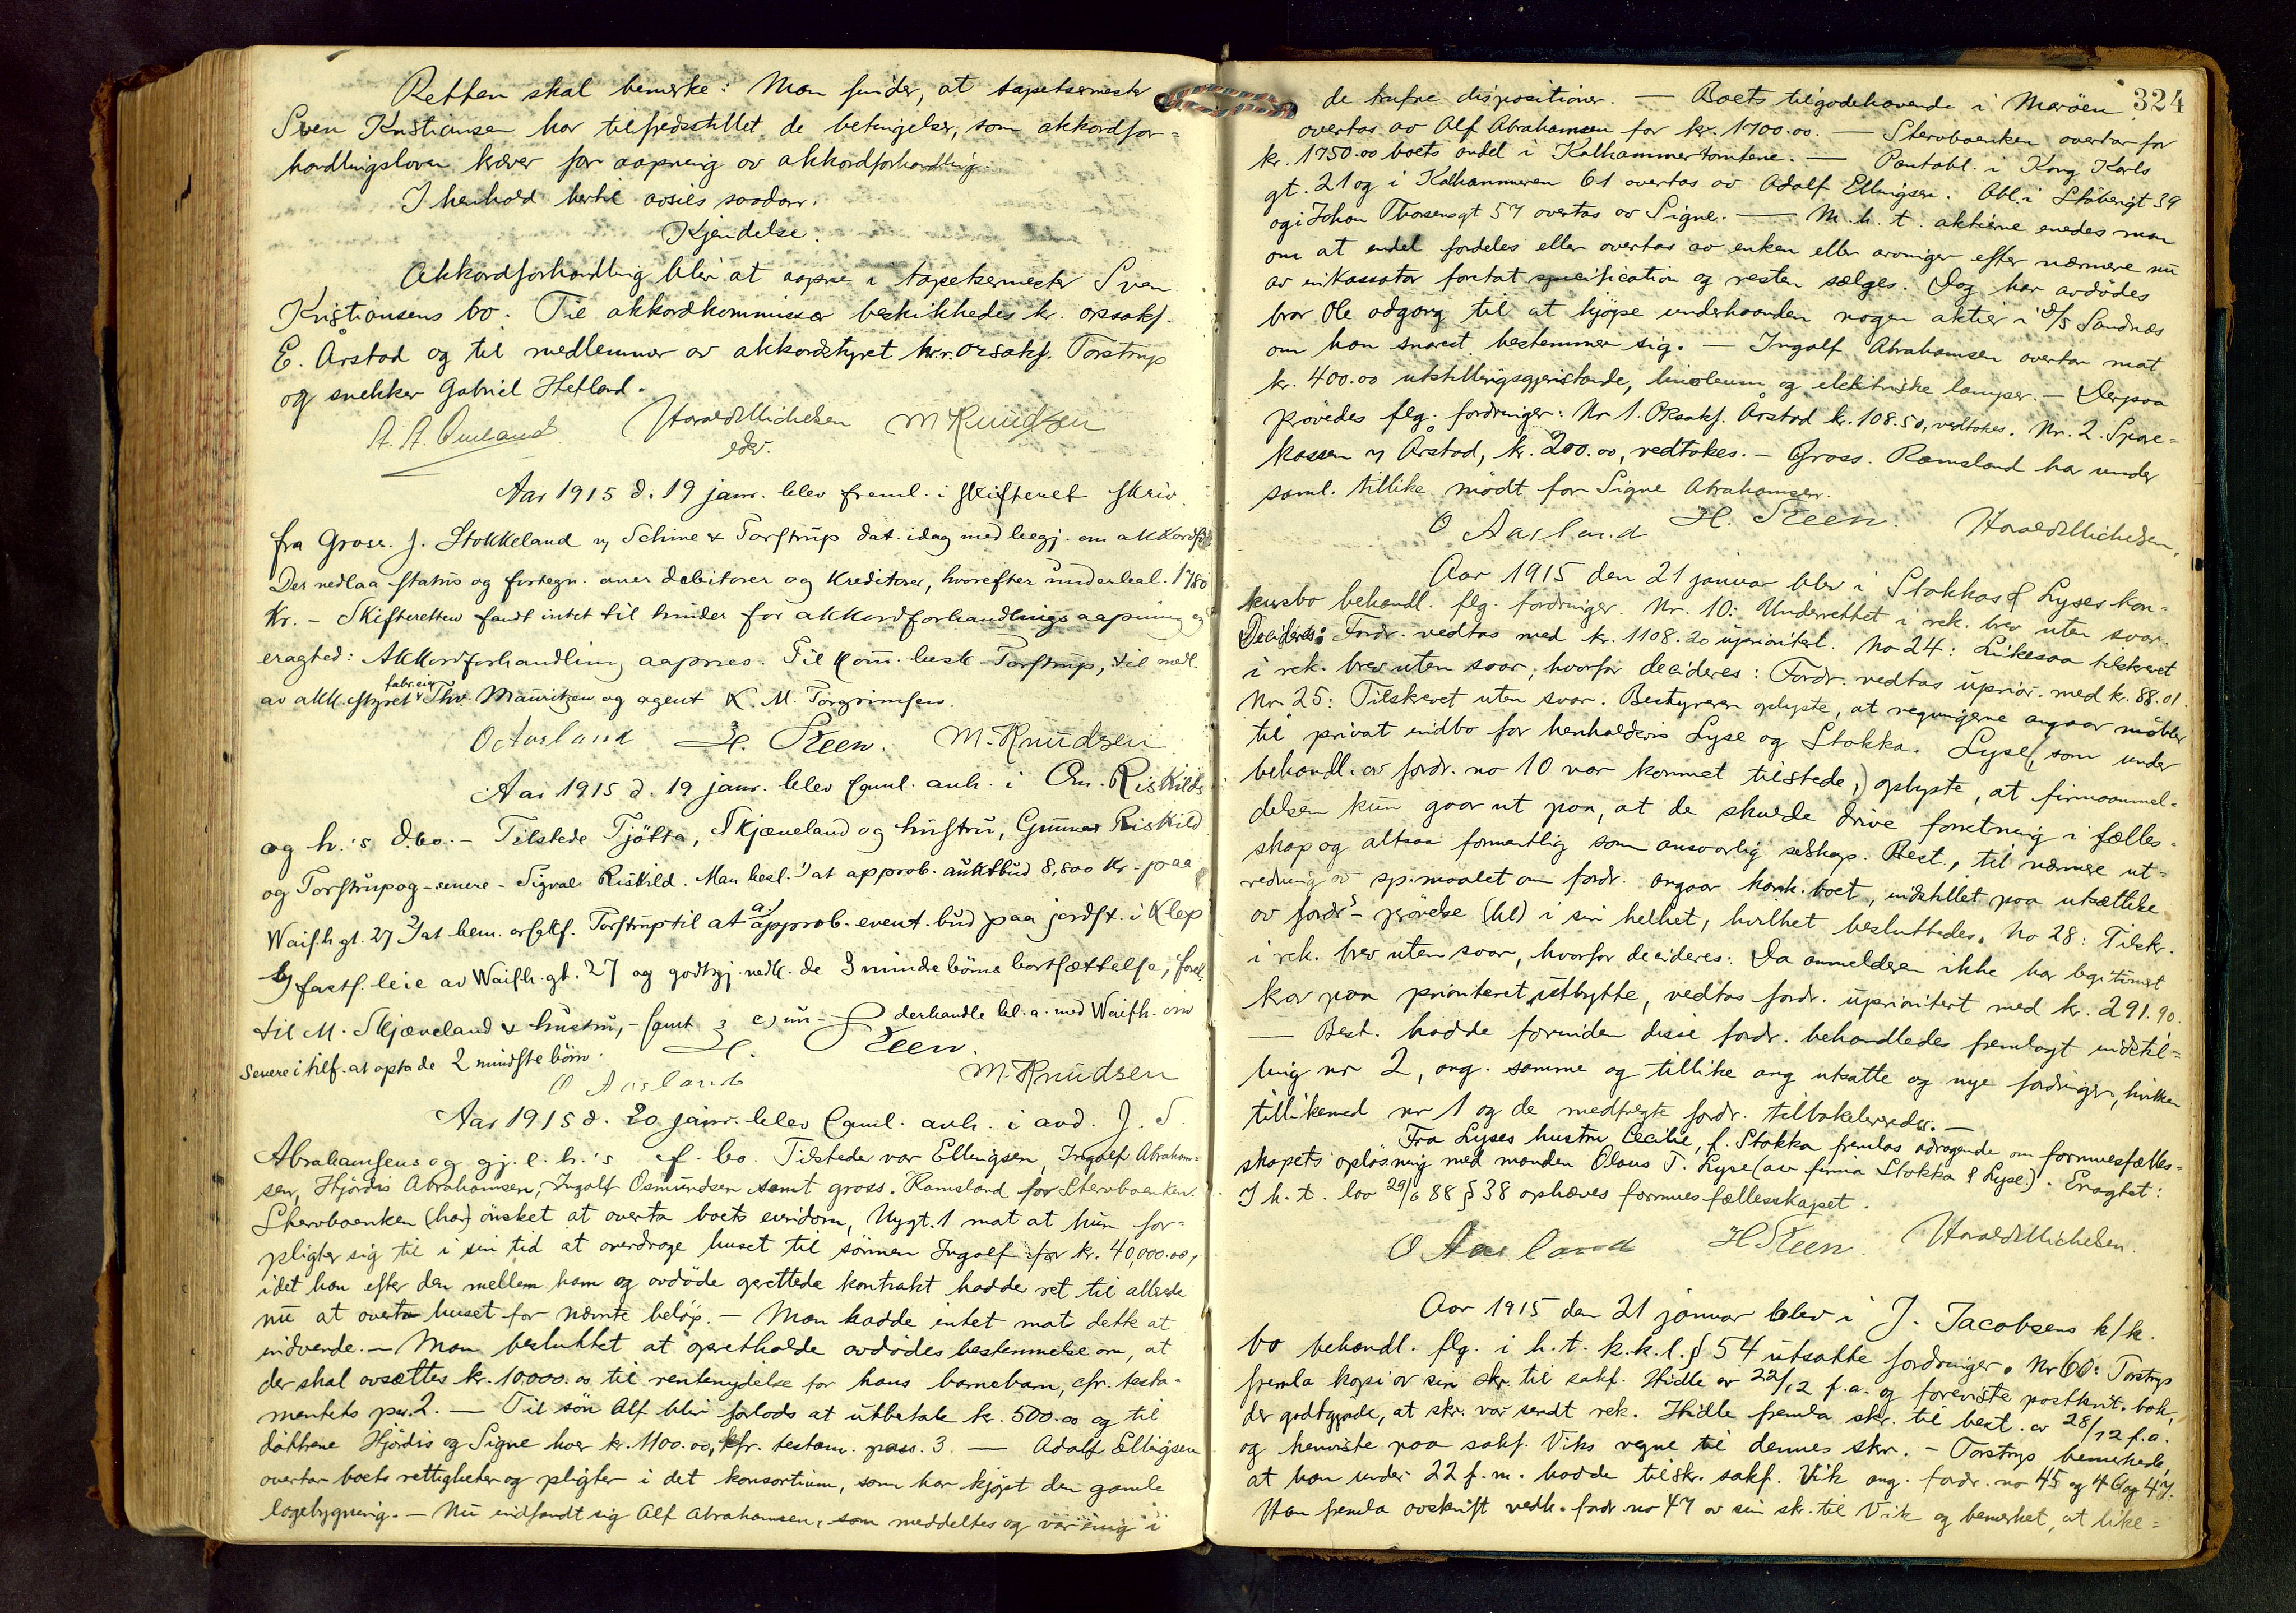 Retten skal bemerke: Man finder, at tapetsermester
Sven Kristiansen har tilfredsstillet de betingelser, som akkordfor=
handlingsloven kræver for aapning av akkordforhandling.
I henhold hertil avsies saadan.
Kjendelse.
Akkordforhandling blir at aapne i tapetsermester Sven
Kristiansens bo. Til akkordkommissær beskikkedes kr. orsakf.
E. Årstad og til medlemmer av akkordstyret h.r. orsakf. Torstrup
og snekker Gabriel Hetland.
Harald Michelsen M Knudsen
edsv.
Aar 1915 d. 19 janr. blev freml. i skifteret skriv.
fra Gross. J. Stokkeland v/ Schine & Torstrup dat. idag med begj. om akkordf
Der nedlaa status og fortegn. over debitorer og kreditorer, hvorefter underbal. 1780
Kr. - Skifteretten fandt intet til hinder for akkordforhandlings aapning og
eragted: Akkordforhandling aapnes. Til kom. besk. Torstrup, til medl.
av akk. styret fabr.eier Thv. Mauritzen og agent K. M. Torgrimsen.
O Aasland H. Steen. M. Knudsen
Aar 1915 d. 19 janr. blev saml. avh. i On. Riskilds
og h.'s d.bo. - Tilstede Tjötta, Skjæveland og hustru, Gunnar Riskild
og Torstrup og - senere - Sigval Riskild. Man besl. 1) at approb. auktbud 8,800 kr. paa
Waish.gt. 27 2) at bem. orsakf. Torstrup til at a) approb. event. bud paa jordst. i Klep
b) fasts. leie av Waish. gt. 27 og godtgj. vedk. de 3 mindre börns bortsættelse,
til M. Skjæveland & hustru, - samt c) un- derhandle bl. a. med Waish. om
senere i tilf. at opta de 2 mindste börn. H. Steen.
O Aasland M. Knudsen
Aar 1915 d. 20 janr. blev saml. avh. i avd. J. S.
Abrahamsens og gj. l. h.'s f. bo. Tilstede var Ellingsen, Ingolf Abraham=
sen, Hjördis Abrahamsen, Ingolf Osmundsen samt gross. Ramsland for Stervboenken.
Stervboenken (har) önsket at overta boets eiendom, Nygt. 1 mot at hun for=
pligter sig til i sin tid at overdrage huset til sönnen Ingolf for kr. 40,000.00,
idet han efter den mellem ham og avdöde oprettede kontrakt hadde ret til allerede
nu at overta huset for nævnte belöp. - Man hadde intet mot dette at
indvende. - Man besluttet at opretholde avdödes bestemmelse om, at
der skal avsættes kr. 10000.00 til rentenydelse for hans barnebarn, cfr. testa=
mentets pas. 2. - Til sön Alf blir forlods at utbetale kr. 500.00 og til
döttrene Hjördis og Signe hver kr. 1100.00, cfr. testam. pass. 3. - Adolf Ellingsen
overtar boets rettigheter og pligter i det konsortium, som har kjøpt den gamle
logebygning. - Nu indfandt sig Alf Abrahamsen, som meddeltes og var enig i
324
de trufne dispositioner. - Boets tilgodehavende i Maröen
overtas av Alf Abrahamsen for kr. 1700.00. - Stervboenken overtar for
kr. 1750.00 boets andel i Kalhammertomtene. - Pantobl. i Kong Karls
gt. 21 og i Kalhammeren 61 overtas av Adolf Ellingsen. Obl. i Støbergt 39
og i Johan Thorsensgt 57 overtas av Signe. - M. h. t. aktierne enedes man
om at endel fordeles eller overtas av enken eller arvinger efter nærmere nu
av inkassator foretat specification og resten sælges. Dog har avdödes
bror Ole adgang til at kjöpe underhaanden nogen aktier i D/S Sandnæs
om han snarest bestemmer sig. - Ingolf Abrahamsen overtar mot
kr. 400.00 utstillingsgjenstande, linoleum og elektriske lamper. - Derpaa
prövedes flg. fordringer: Nr 1. Orsakf. Årstad kr. 108.50, vedtokes. Nr. 2. Spare=
kassen v/ Årstad, kr. 200.00, vedtokes. - Gross. Ramsland har under
saml. tillike mödt for Signe Abrahamsen.
O Aasland H. Steen. Harald Michelsen.
Aar 1915 den 21 januar blev i Stokka & Lyses kon=
kursbo behandl. flg. fordringer. Nr. 10: Underrettet i rek. brev uten svar.
Decideres: Fordr. vedtas med kr. 1108.20 uprioritert. No 24: Likesaa tilskrevet
i rek. brev uten svar, hvorfor decideres: Fordr. vedtas uprior. med kr. 88.01.
Nr. 25: Tilskrevet uten svar. Bestyreren oplyste, at regningene angaar möbler
til privat indbo for henholdsvis Lyse og Stokka. Lyse (, som under
behandl. av fordr. no 10 var kommet tilstede,) oplyste, at firmaanmel=
delsen kun gaar ut paa, at de skulde drive forretning i fælles=
skap og altsaa formentlig som ansvarlig selskap. Best., til nærmere ut=
redning av sp.maalet om fordr. angaar konk. boet, indstillet paa utsættelse
av fordr.s prövelse (bl) i sin helhet, hvilket besluttedes. No 28: Tilskr.
i rek. brev uten svar, hvorfor decideres: Da anmelderen ikke har legitimert
krav paa prioriteret utbytte, vedtas fordr. uprioritert med kr. 291.90.
- Best. hadde forinden disse fordr. behandledes fremlagt indstil=
ling nr 2, ang. samme og tillike ang utsatte og nye fordringer, hvilken
tillikemed nr 1 og de medfulgte fordr. tilbakeleveredes. -
Fra Lyses hustru Cecilie, f. Stokka fremlas andragende om formuesfælles=
skapets oplösning med manden Olaus T. Lyse (av firma Stokka & Lyse). Eragtet:
I h. t. lov 29/6 88 § 38 ophæves formuesfællesskapet.
O Aasland H Steen. Harald Michelsen.
Aar 1915 den 21 januar blev i J. Jacobsens k/k.
bo behandl. flg. i h. t. k.k.l. § 54 utsatte fordringer. Nr 60: Torstrup
fremla kopi av sin skr. til sakf. Hidle av 22/12 f.a. og foreviste postkvit. bok,
der godtgjorde, at skr. var sendt rek. Hidle fremla skr. til best. av 28/12 f.a.
og henviste paa sakf. Viks vegne til dennes skr. - Torstrup bemerkede,
at han under 22 f.m. hadde tilskr. sakf. Vik ang. fordr. no 45 og 46 og 47.
Han fremla avskrift vedk. fordr. no 47 av sin skr. til Vik og bemerket, at like=